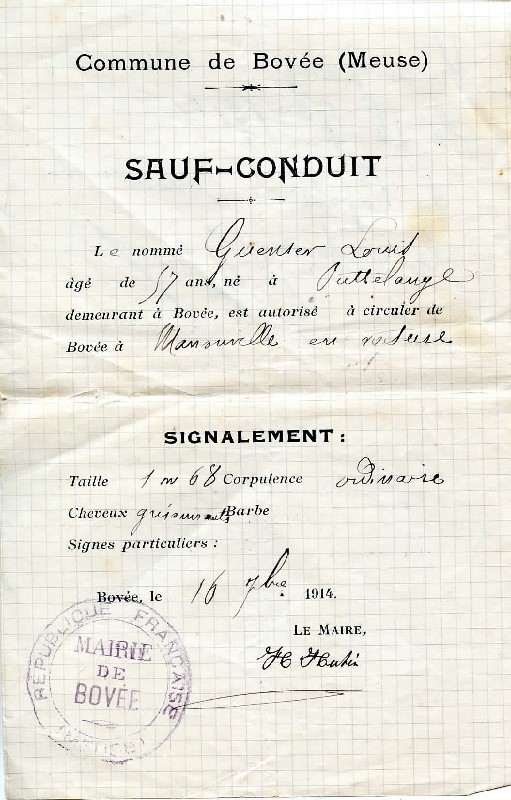 Commune de Bovée (Meuse)
SAUF-CONDUIT
Le nommé Guenser Louis
âgé de 57 ans, né à Puttelange
demeurant à Bovée, est autorisé à circuler de
Bovée à en voiture
SIGNALEMENT :
Taille 1 m 68 Corpulence ordinaire
Cheveux grisonnants Barbe
Signes particuliers :
Bovée, le 16 7bre 1914.
LE MAIRE,
H Hutin
RÉPUBLIQUE FRANÇAISE
MAIRIE
DE
BOVÉE
(MEUSE)